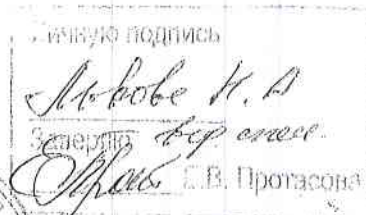 Личную подпись
Львове Н. А
Заверяю
Е.В. Протасова